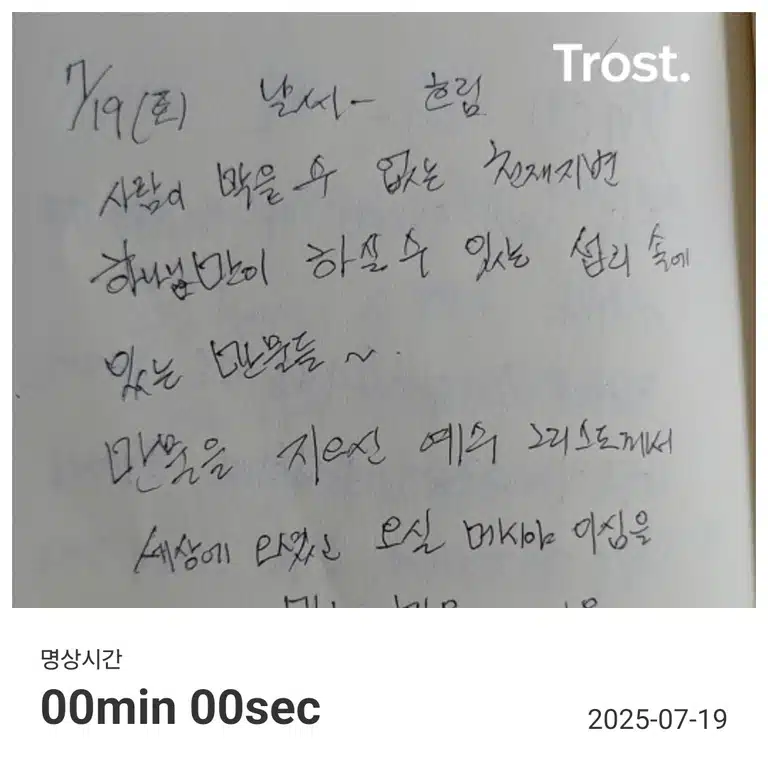 Trost.
7/19(토) 날씨- 흐림
사람이 막을 수 없는 천재지변
하나님만이 하실 수 있는 섭리 속에
있는 만물들~.
만물을 지으신 예수 그리스도께서
세상에 오셨고 오실 메시야 이심을
명상시간
00min 00sec
2025-07-19